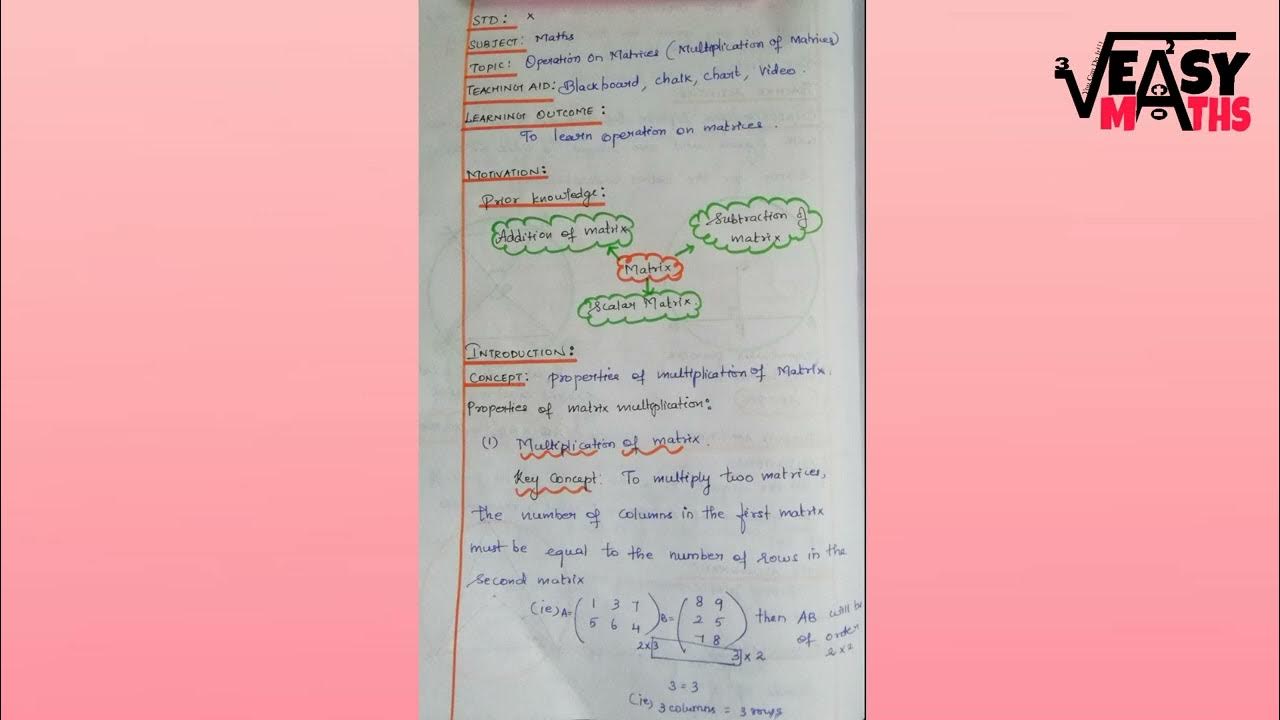 STD: X
SUBJECT: Maths
TOPIC: Operation on Matrices (Multiplication of Matrices)
TEACHING AID: Blackboard, chalk, chart, video.
LEARNING OUTCOME:
To learn operation on matrices.
MOTIVATION:
Prior knowledge:
Addition of matrix
Subtraction of
matrix
Matrix
Scalar Matrix
INTRODUCTION:
CONCEPT: properties of multiplication of Matrix.
Properties of matrix multiplication:
(1) Multiplication of matrix.
Key Concept: To multiply two matrices,
the number of columns in the first matrix
must be equal to the number of rows in the
second matrix
(ie) A= (1 3 7 B= (8 9 then AB will be
5 6 4) 2 5 of order
7 8) 2x2
2x3 3x2
3 = 3
(ie) 3 columns = 3 rows
3 2
VEASY
MATHS